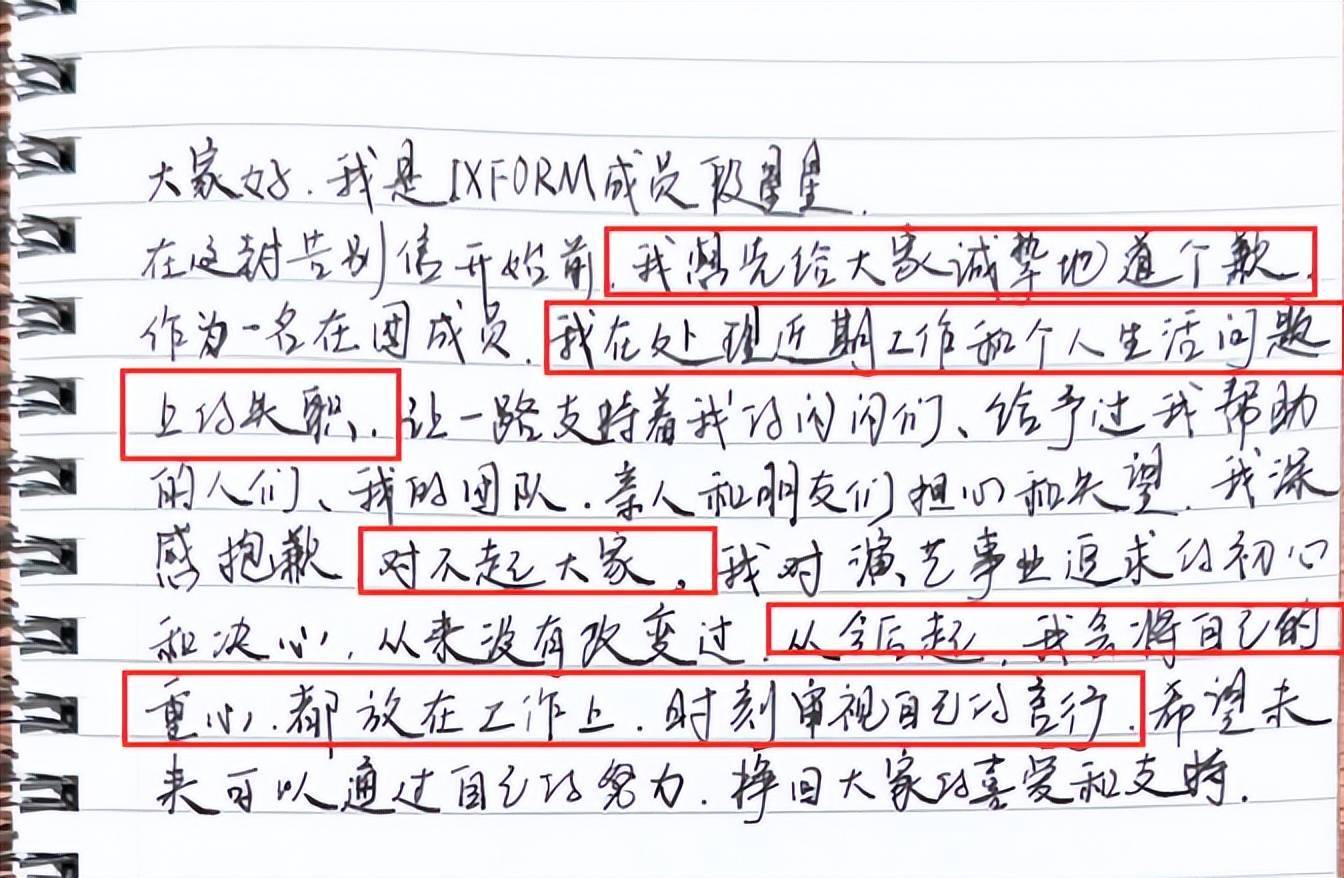 大家好.我是IXFORM成员段星星.
在这封告别信开始前,我想先给大家诚挚地道个歉.
作为一名在团成员.我在处理近期工作和个人生活问题
上的失职,让一路支持着我的闪闪们、给予过我帮助
的人们、我的团队.亲人和朋友们担心和失望.我深
感抱歉 对不起大家。我对演艺事业追求的初心
和决心,从来没有改变过.从今后起,我会将自己的
重心.都放在工作上.时刻审视自己的言行.希望未
来可以通过自己的努力.挣回大家的喜爱和支持.